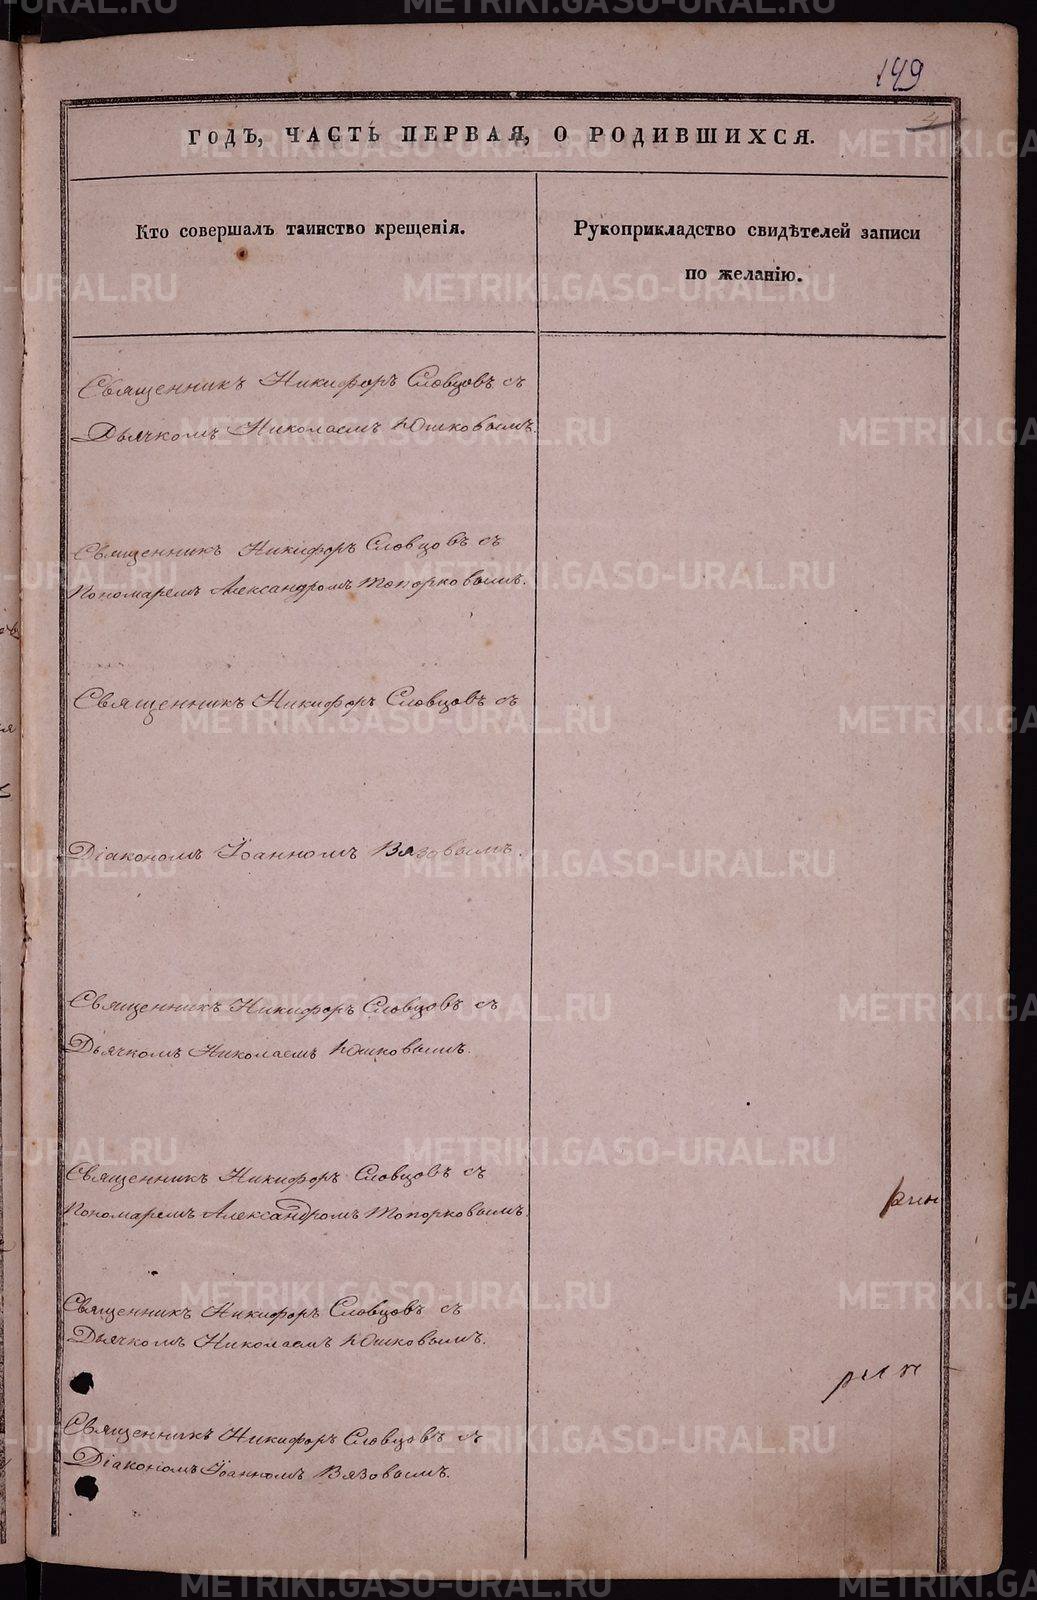 149
4
ГОДЪ, ЧАСТЬ ПЕРВАЯ, О РОДИВШИХСЯ.
Кто совершалъ таинство крещенія.
Рукоприкладство свидѣтелей записи
по желанію.
Священникъ Никифоръ Словцовъ съ
Дьячкомъ Николаемъ Юшковымъ.
Священникъ Никифоръ Словцовъ съ
Пономаремъ Александромъ Топорковымъ.
Священникъ Никифоръ Словцовъ съ
Діакономъ Іоанномъ Вязовымъ.
Священникъ Никифоръ Словцовъ съ
Дьячкомъ Николаемъ Юшковымъ.
Священникъ Никифоръ Словцовъ съ
Пономаремъ Александромъ Топорковымъ.
Священникъ Никифоръ Словцовъ съ
Дьячкомъ Николаемъ Юшковымъ.
Священникъ Никифоръ Словцовъ съ
Діакономъ Іоанномъ Вязовымъ.
METRIKI.GASO-URAL.RU